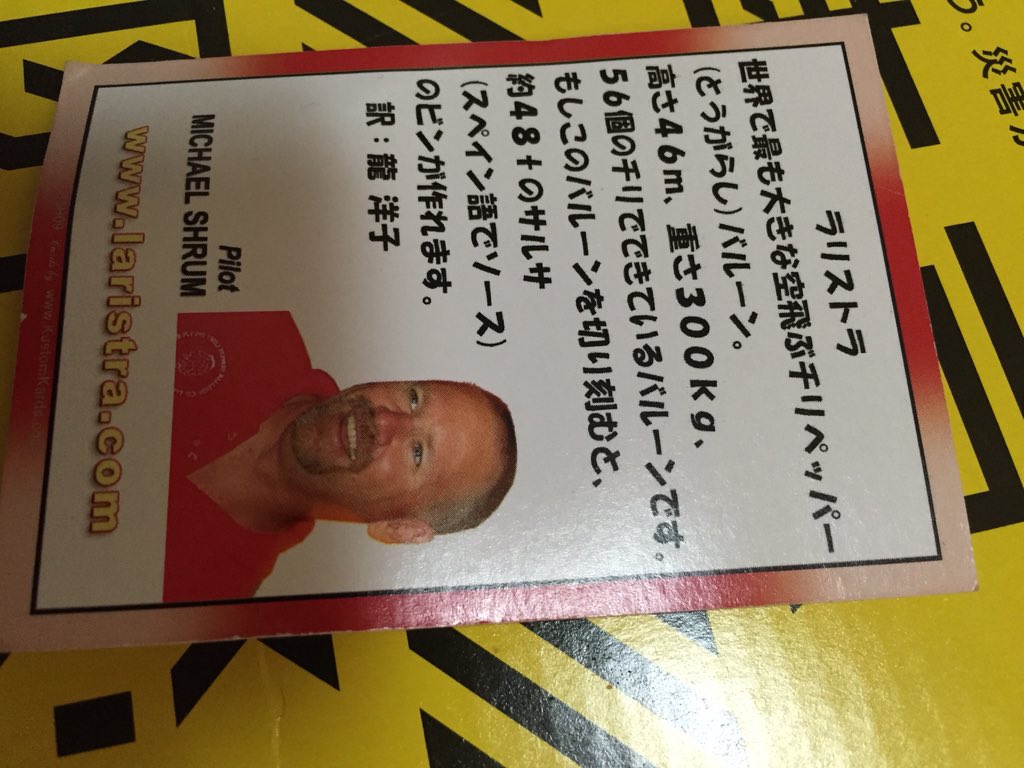 ラリストラ
世界で最も大きな空飛ぶチリペッパー
(とうがらし)バルーン。
高さ46m、重さ300Kg、
56個のチリでできているバルーンです。
もしこのバルーンを切り刻むと、
約48tのサルサ
(スペイン語でソース)
のビンが作れます。
訳：龍 洋子
Pilot
MICHAEL SHRUM
www.laristra.com
災害